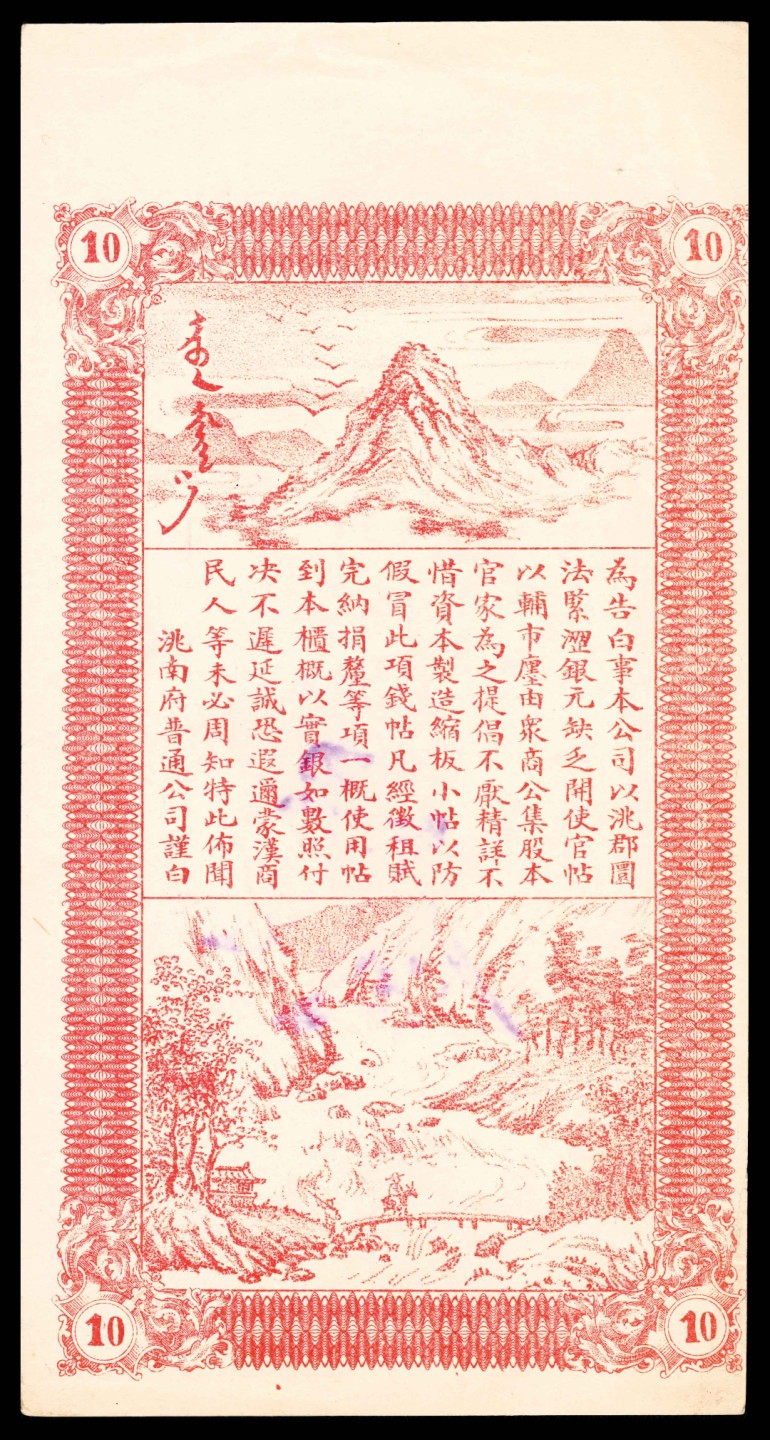 10
10
為告白事本公司以洮郡圜
法緊澀銀元缺乏開使官帖
以輔市廛由衆商公集股本
官家為之提倡不厭精詳不
惜資本製造縮板小帖以防
假冒此項錢帖凡經徵租賦
完納捐釐等項一概使用帖
到本櫃概以實銀如數照付
决不遲延誠恐遐邇蒙漢商
民人等未必周知特此佈聞
洮南府普通公司謹白
10
10